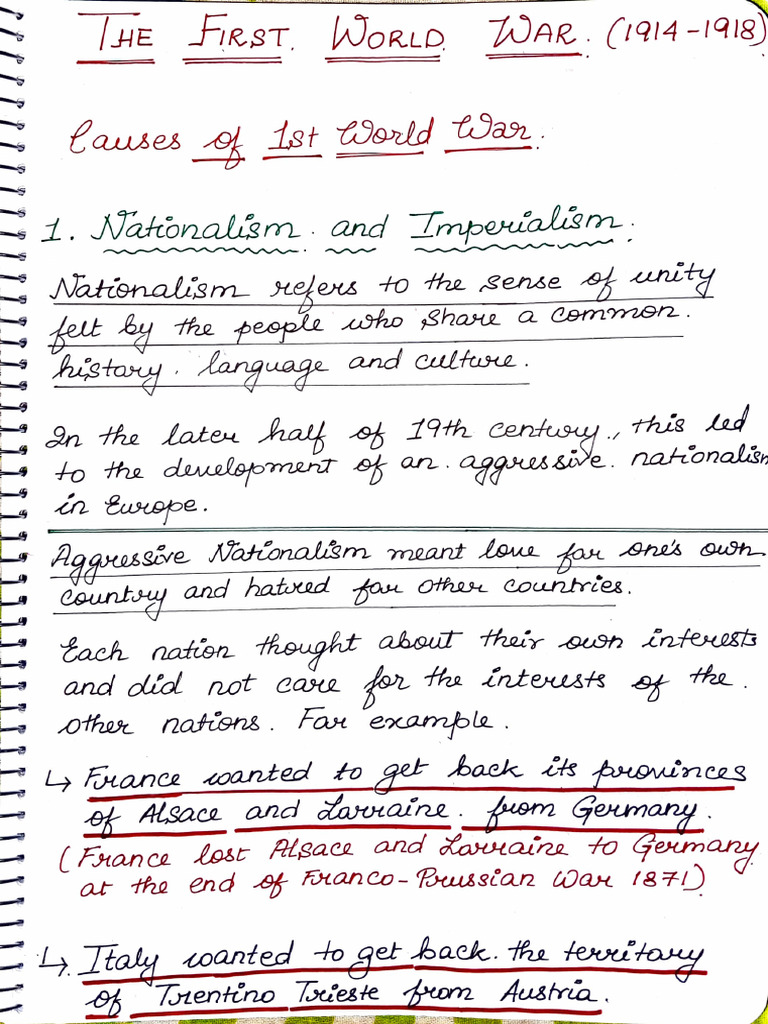 THE FIRST WORLD WAR. (1914-1918)
Causes of 1st World War.
1. Nationalism and Imperialism.
Nationalism refers to the sense of unity
felt by the people who share a common.
history. language and culture.
In the later half of 19th century, this led
to the development of an aggressive. nationalism
in Europe.
Aggressive Nationalism meant love for one's own
country and hatred for other countries.
Each nation thought about their own interests
and did not care for the interests of the.
other nations. For example.
↳ France wanted to get back its provinces
of Alsace and Larraine. from Germany.
(France lost Alsace and Larraine to Germany
at the end of Franco-Prussian War 1871)
↳ Italy wanted to get back the territary
of Trentino Trieste from Austria.